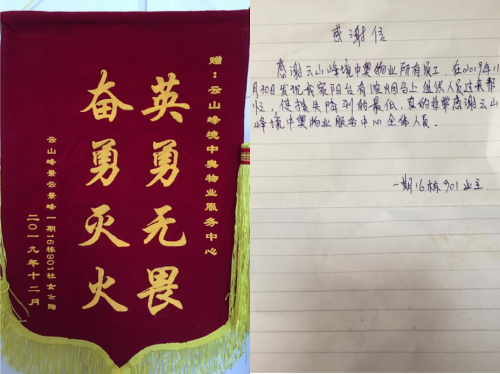 赠：云山峰境中奥物业服务中心
英勇无畏
奋勇灭火
云山峰景云景峰一期16栋901杜女士赠
二〇一九年十二月
感谢信
感谢云山峰境中奥物业所有员工，在2019年11
月30日发现我家阳台有浓烟马上组织人员过来帮
忙，使损失降到的最低，真的非常感谢云山
峰境中奥物业服务中心全体人员．
一期16栋901业主